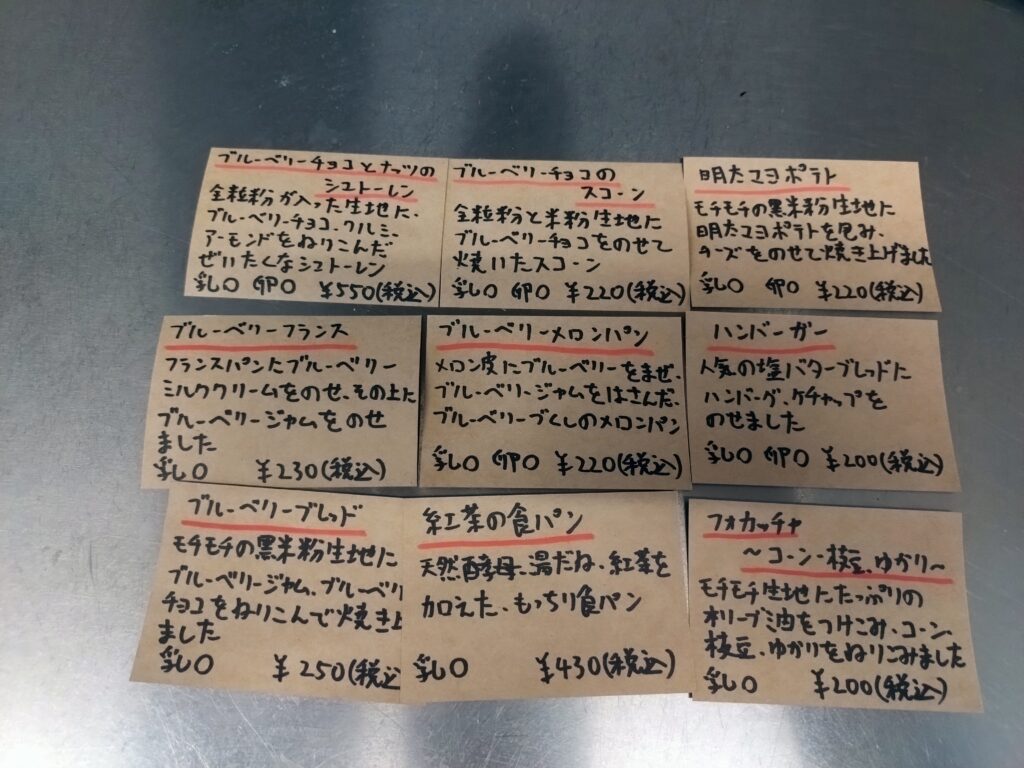 ブルーベリーチョコとナッツの
シュトーレン
全粒粉が入った生地に、
ブルーベリーチョコ、クルミ、
アーモンドをねりこんだ
ぜいたくなシュトーレン
乳〇 卵〇 ¥550(税込)
ブルーベリーチョコの
スコーン
全粒粉と米粉生地に
ブルーベリーチョコをのせて
焼いたスコーン
乳〇 卵〇 ¥220(税込)
明太マヨポテト
モチモチの黒米粉生地に
明太マヨポテトを包み、
チーズをのせて焼き上げました
乳〇 卵〇 ¥220(税込)
ブルーベリーフランス
フランスパンにブルーベリー
ミルククリームをのせ、その上に
ブルーベリージャムをのせ
ました
乳〇 ¥230(税込)
ブルーベリーメロンパン
メロン皮にブルーベリーをまぜ、
ブルーベリージャムをはさんだ、
ブルーベリーづくしのメロンパン
乳〇 卵〇 ¥220(税込)
ハンバーガー
人気の塩バターブレッドに
ハンバーグ、ケチャップを
のせました
乳〇 卵〇 ¥200(税込)
ブルーベリーブレッド
モチモチの黒米粉生地に
ブルーベリージャム、ブルーベリ
チョコをねりこんで焼き上
ました
乳〇 ¥250(税込
紅茶の食パン
天然酵母、湯だね、紅茶を
加えた、もっちり食パン
乳〇 ¥430(税込)
フォカッチャ
～コーン・枝豆、ゆかり～
モチモチ生地にたっぷりの
オリーブ油をつけこみ、コーン、
枝豆、ゆかりをねりこみました
乳〇 ¥200(税込)